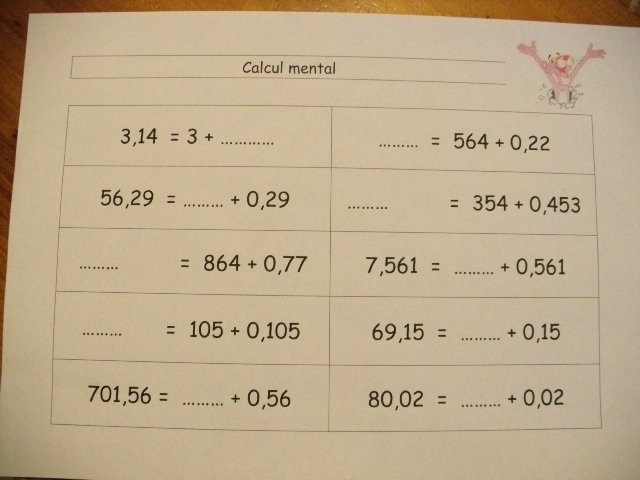 Calcul mental
3,14 = 3 + ............
......... = 564 + 0,22
56,29 = ......... + 0,29
......... = 354 + 0,453
......... = 864 + 0,77
7,561 = ......... + 0,561
......... = 105 + 0,105
69,15 = ......... + 0,15
701,56 = ......... + 0,56
80,02 = ......... + 0,02